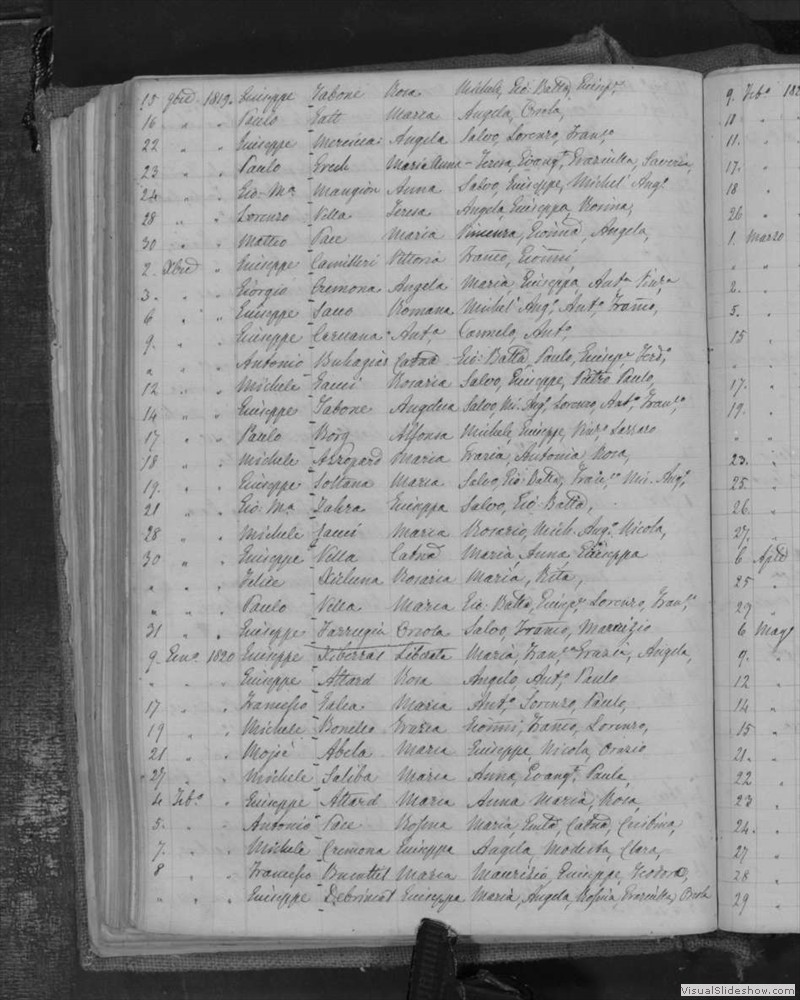 15 9bre 1819. Giuseppe Tabone Rosa Michele, Gio: Batta, Giusepe,
16 " " Paulo Galt Maria Angela, Orsola,
22 " " Giuseppe Mercieca Angela Salvo, Lorenzo, Franco,
23 " " Paulo Grech Maria Anna - Teresa, Evangta, Graziulla, Saveria,
24 " " Gio: Ma Mangion Anna Salvo, Giuseppe, Michel' Ango
28 " " Lorenzo Vella Teresa Angela, Giuseppa, Rosina,
30 " " Matteo Pace Maria Vincenza, Gionna, Angela,
2 Xbre " Giuseppe Camilleri Vittoria Franco, Gionni
3. " " Giorgio Cremona Angela Maria, Giuseppa, Anta Vinza
6 " " Giuseppe Sacco Romana Michel' Ango, Anto, Franco,
9. " " Giuseppe Caruana Anta Carmelo, Anto,
" " " Antonio Buhagiar Catna Gio: Batta, Paulo, Giusepe, Ferdo,
12 " " Michele Gauci Rosaria Salvo, Giuseppe, Pietro Paulo,
14 " " Giuseppe Tabone Angelica Salvo, Mi. Ango, Lorenzo, Anto, Franco,
17 " " Paulo Borg Alfonsa Michele, Giuseppe, Vinzo, Lazzaro
18 " " Michele Azzopard Maria Grazia, Antonia Rosa,
19. " " Giuseppe Sultana Maria Salvo, Gio: Batta, Franco, Mi. Ango,
21 " " Gio: Ma Zahra Giuseppa Salvo, Gio: Batta,
28 " " Michele Gauci Maria Rosario, Mich. Ango, Nicola,
30 " " Giuseppe Vella Catna Maria, Anna Giuseppa
" " " Felice Xicluna Rosaria Maria, Rita,
" " " Paulo Vella Maria Gio: Batta, Giusepe, Lorenzo, Franco
31 " " Giuseppe Farrugia Orsola Salvo, Franco, Maurizio
9. Geno 1820 Giuseppe Xiberras Liberata Maria, Franca, Grazia, Angela,
" " " Giuseppe Attard Rosa Angelo, Anto, Paulo
17 " " Francesco Galea Maria Anto, Lorenzo, Paulo,
19 " " Michele Bonello Grazia Gionni, Franco, Lorenzo,
21 " " Mosjè Abela Maria Giuseppe, Nicola, Orazio
27 " " Michele Saliba Maria Anna, Evangta, Paula,
4 Febo " Giuseppe Attard Maria Anna Maria, Rosa,
5. " " Antonio Pace Rosina Maria, Catna, Cristina,
7. " " Michele Cremona Giuseppa Angela, Modesta, Clara,
8 " " Francesco Buontel Maria Maurizio, Giuseppe, Teodoro,
" " " Giuseppe Debrincat Giuseppa Maria, Angela, Rosina, Graziulla, Orsola
9. Febo 182
11 "
11. "
17. "
18 "
26 "
1. Marzo
" "
2. "
5. "
15 "
17. "
19. "
" "
23. "
25. "
26. "
27. "
6 Aple
25 "
29 "
6 Mago
9. "
12 "
14 "
15 "
21. "
22 "
23 "
24. "
27 "
28 "
29 "
VisualSlideshow.com